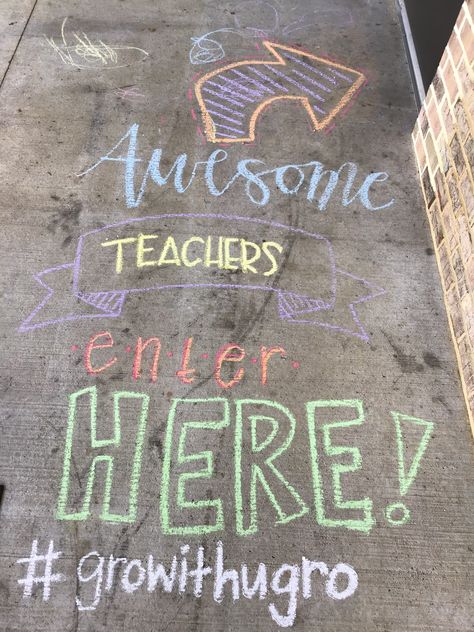 Awesome
TEACHERS
enter
HERE!
#growithugro